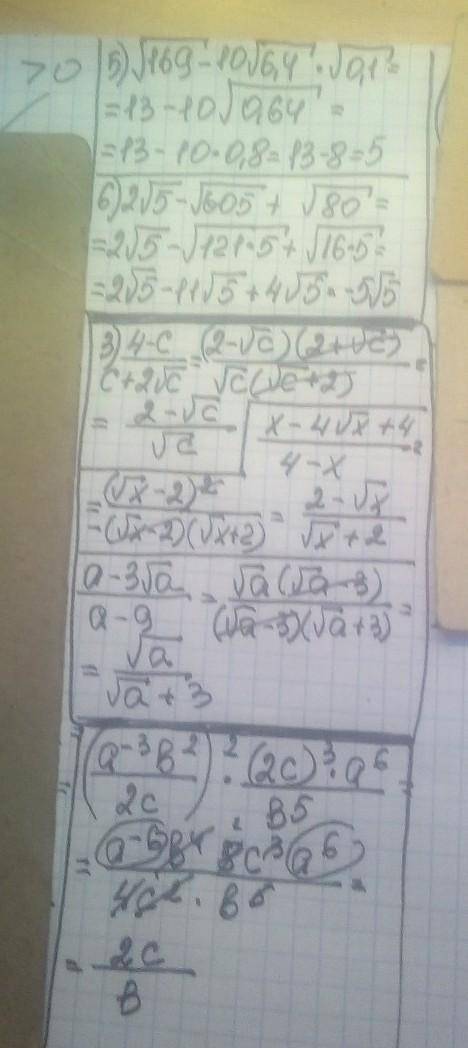 >0
5) √169 - 10√6,4 · √0,1 =
= 13 - 10√0,64 =
= 13 - 10·0,8 = 13-8 = 5
6) 2√5 - √605 + √80 =
= 2√5 - √121·5 + √16·5 =
= 2√5 - 11√5 + 4√5 = -5√5
3) (4-c)/(c+2√c) = (2-√c)(2+√c)/(√c(√c+2)) =
= (2-√c)/√c
(x-4√x+4)/(4-x) =
= (√x-2)²/(-(√x-2)(√x+2)) = (2-√x)/(√x+2)
(a-3√a)/(a-9) = √a(√a-3)/((√a-3)(√a+3)) =
= √a/(√a+3)
= (a⁻³b²/2c)² · (2c)³·a⁶/b⁵ =
= a⁻⁶b⁴ 8c³a⁶/(4c²·b⁵) =
= 2c/b